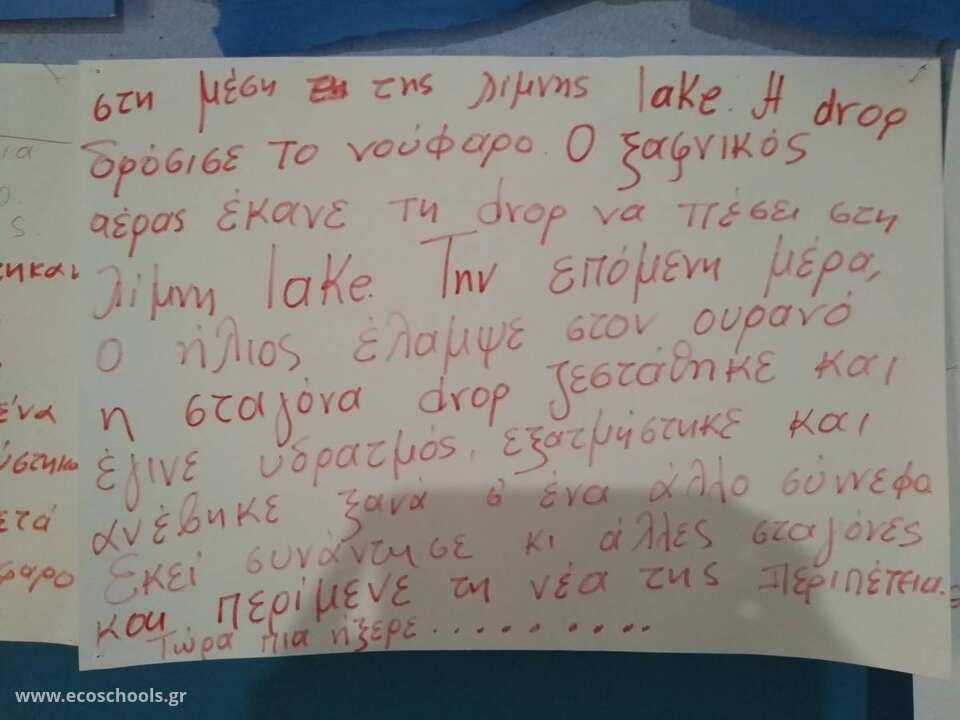 στη μέση της λίμνης lake. Η drop
δρόσισε το νούφαρο. Ο ξαφνικός
αέρας έκανε τη drop να πέσει στη
λίμνη lake. Την επόμενη μέρα,
ο ήλιος έλαμψε στον ουρανό
η σταγόνα drop ζεστάθηκε και
έγινε υδρατμός, εξατμήστηκε και
ανέβηκε ξανά σ ένα άλλο σύννεφο
Εκεί συνάντησε κι άλλες σταγόνες
και περίμενε τη νέα της περιπέτεια.
Τώρα πια ήξερε..........
ια
ς.
ένα
ετά
www.ecoschools.gr